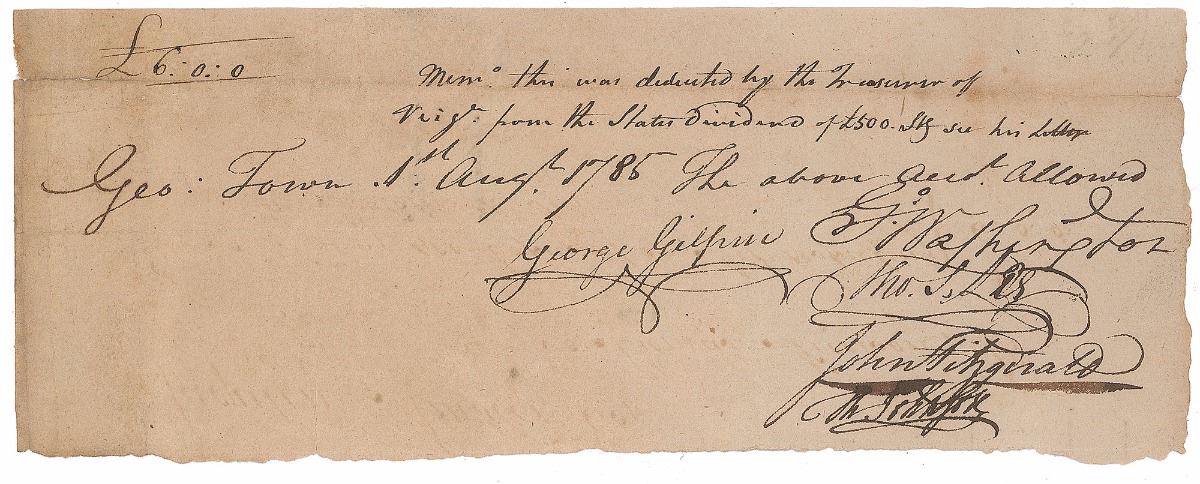 £ 6:0:0
Memo. this was deducted by the Treasurer of
Virga. from the States Dividend of £500. Stg see his Letter
Geo: Town 1st. Augt. 1785 The above Acct. Allowed
George Gilpin Go. Washington
Tho. S. Lee
John Fitzgerald
Th. Johnson